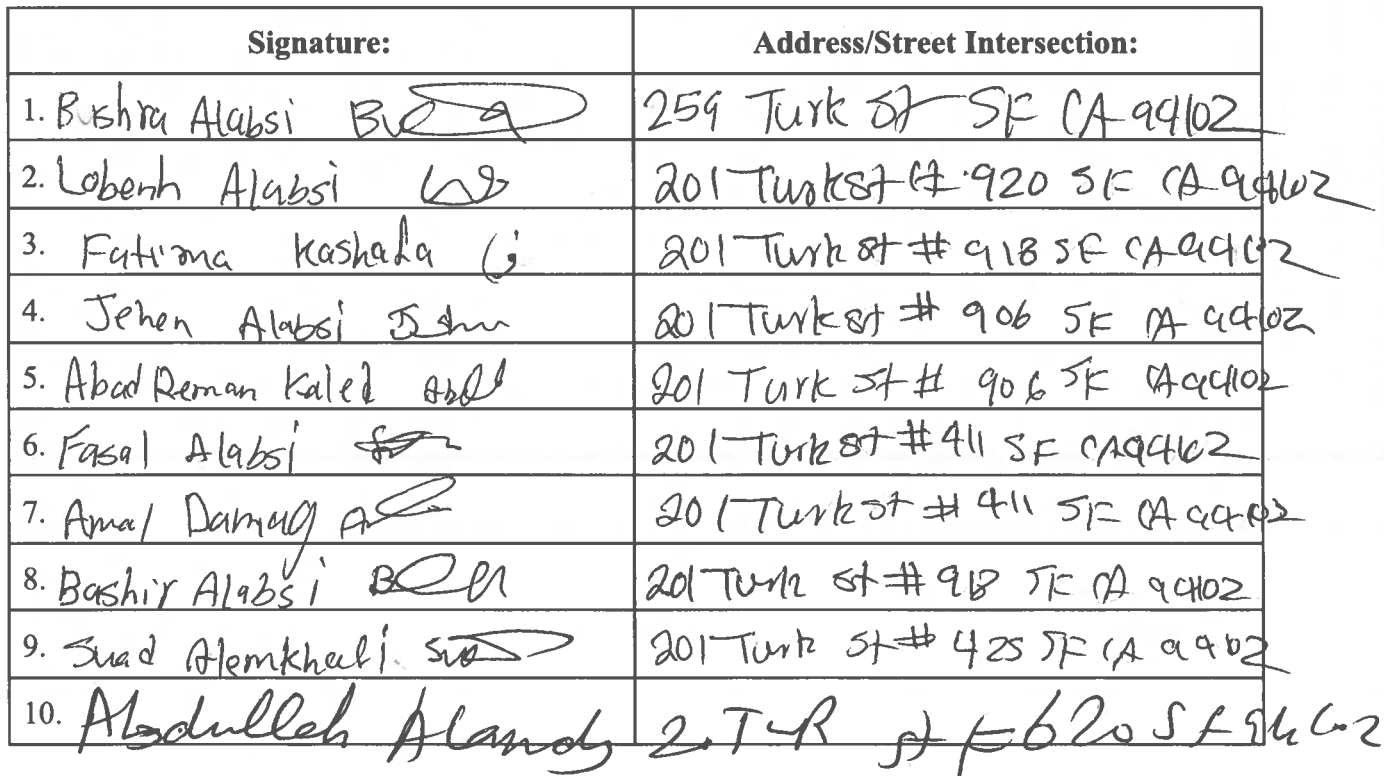 Signature: Address/Street Intersection:
1. Bushra Alabsi 259 Turk St SF CA 94102
2. Lobenh Alabsi 201 Turk St #920 SF CA 94102
3. Fatima Kashafa 201 Turk st # 918 SF CA 94102
4. Jehen Alabsi 201 Turk st # 906 SF CA 94102
5. Abad Reman Kaled 201 Turk St # 906 SF CA 94102
6. Fasal Alabsi 201 Turk st # 411 SF CA 94102
7. Amal Damag 201 Turk st # 411 SF CA 94102
8. Bashir Alabsi 201 Turk st # 918 SF CA 94102
9. Suad 201 Turk St # 425 SF CA
10. Abdulleh 620 SF